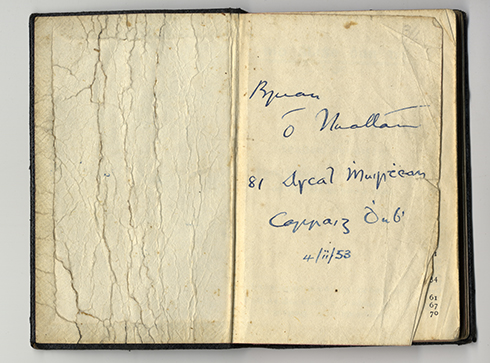 Brian
Ó Nualláin
81 Ascal Ṁuirfean
Carraig Ḋuḃ
4/ii/53
61
67
70